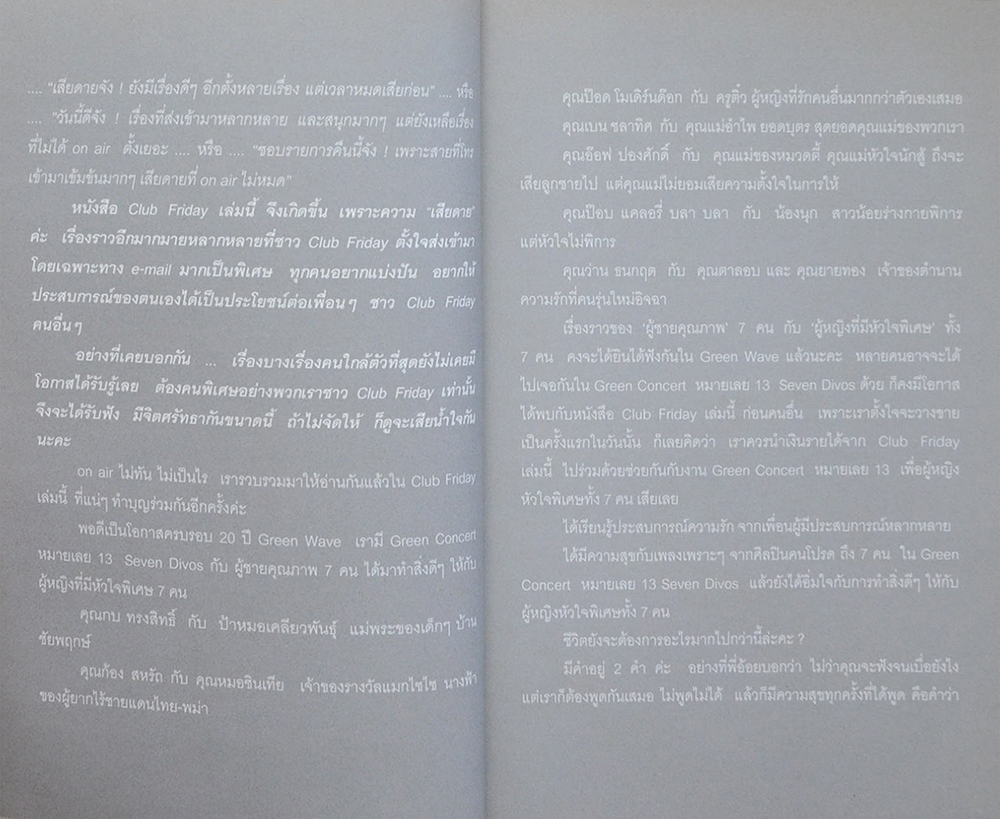 .... "เสียดายจัง ! ยังมีเรื่องดีๆ อีกตั้งหลายเรื่อง แต่เวลาหมดเสียก่อน" .... หรือ
.... "วันนี้ดีจัง ! เรื่องที่ส่งเข้ามาหลากหลาย และสนุกมากๆ แต่ยังเหลือเรื่อง
ที่ไม่ได้ on air ตั้งเยอะ .... หรือ .... "ชอบรายการคืนนี้จัง ! เพราะสายที่โทร
เข้ามาเข้มข้นมากๆ เสียดายที่ on air ไม่หมด"
หนังสือ Club Friday เล่มนี้ จึงเกิดขึ้น เพราะความ "เสียดาย"
ค่ะ เรื่องราวอีกมากมายหลากหลายที่ชาว Club Friday ตั้งใจส่งเข้ามา
โดยเฉพาะทาง e-mail มากเป็นพิเศษ ทุกคนอยากแบ่งปัน อยากให้
ประสบการณ์ของตนเองได้เป็นประโยชน์ต่อเพื่อนๆ ชาว Club Friday
คนอื่นๆ
อย่างที่เคยบอกกัน ... เรื่องบางเรื่องคนใกล้ตัวที่สุดยังไม่เคยมี
โอกาสได้รับรู้เลย ต้องคนพิเศษอย่างพวกเราชาว Club Friday เท่านั้น
จึงจะได้รับฟัง มีจิตศรัทธากันขนาดนี้ ถ้าไม่จัดให้ ก็ดูจะเสียน้ำใจกัน
นะคะ
on air ไม่ทัน ไม่เป็นไร เรารวบรวมมาให้อ่านกันแล้วใน Club Friday
เล่มนี้ ที่แน่ๆ ทำบุญร่วมกันอีกครั้งค่ะ
พอดีเป็นโอกาสครบรอบ 20 ปี Green Wave เรามี Green Concert
หมายเลข 13 Seven Divos กับ ผู้ชายคุณภาพ 7 คน ได้มาทำสิ่งดีๆ ให้กับ
ผู้หญิงที่มีหัวใจพิเศษ 7 คน
คุณกบ ทรงสิทธิ์ กับ ป้าหมอเคลียวพันธุ์ แม่พระของเด็กๆ บ้าน
ชัยพฤกษ์
คุณก้อง สหรัถ กับ คุณหมอซินเทีย เจ้าของรางวัลแมกไซไซ นางฟ้า
ของผู้ยากไร้ชายแดนไทย-พม่า
คุณป๊อด โมเดิร์นด๊อก กับ ครูติ๋ว ผู้หญิงที่รักคนอื่นมากกว่าตัวเองเสมอ
คุณเบน ชลาทิศ กับ คุณแม่อำไพ ยอดบุตร สุดยอดคุณแม่ของพวกเรา
คุณอ๊อฟ ปองศักดิ์ กับ คุณแม่ของหมวดตี้ คุณแม่หัวใจนักสู้ ถึงจะ
เสียลูกชายไป แต่คุณแม่ไม่ยอมเสียความตั้งใจในการให้
คุณป๊อบ แคลอรี่ บลา บลา กับ น้องนุก สาวน้อยร่างกายพิการ
แต่หัวใจไม่พิการ
คุณว่าน ธนกฤต กับ คุณตาลอบ และ คุณยายทอง เจ้าของตำนาน
ความรักที่คนรุ่นใหม่อิจฉา
เรื่องราวของ 'ผู้ชายคุณภาพ' 7 คน กับ 'ผู้หญิงที่มีหัวใจพิเศษ' ทั้ง
7 คน คงจะได้ยินได้ฟังกันใน Green Wave แล้วนะคะ หลายคนอาจจะได้
ไปเจอกันใน Green Concert หมายเลข 13 Seven Divos ด้วย ก็คงมีโอกาส
ได้พบกับหนังสือ Club Friday เล่มนี้ ก่อนคนอื่น เพราะเราตั้งใจจะวางขาย
เป็นครั้งแรกในวันนั้น ก็เลยคิดว่า เราควรนำเงินรายได้จาก Club Friday
เล่มนี้ ไปร่วมด้วยช่วยกันกับงาน Green Concert หมายเลข 13 เพื่อผู้หญิง
หัวใจพิเศษทั้ง 7 คน เสียเลย
ได้เรียนรู้ประสบการณ์ความรัก จากเพื่อนผู้มีประสบการณ์หลากหลาย
ได้มีความสุขกับเพลงเพราะๆ จากศิลปินคนโปรด ถึง 7 คน ใน Green
Concert หมายเลข 13 Seven Divos แล้วยังได้อิ่มใจกับการทำสิ่งดีๆ ให้กับ
ผู้หญิงหัวใจพิเศษทั้ง 7 คน
ชีวิตยังจะต้องการอะไรมากไปกว่านี้ล่ะคะ ?
มีคำอยู่ 2 คำ ค่ะ อย่างที่พี่อ้อยบอกว่า ไม่ว่าคุณจะฟังจนเบื่อยังไง
แต่เราก็ต้องพูดกันเสมอ ไม่พูดไม่ได้ แล้วก็มีความสุขทุกครั้งที่ได้พูด คือคำว่า